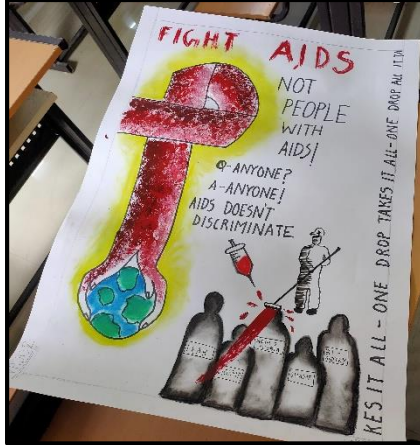 FIGHT AIDS
NOT
PEOPLE
WITH
AIDS!
Q-ANYONE?
A-ANYONE!
AIDS DOESN'T
DISCRIMINATE.
KES IT ALL-ONE DROP TAKES IT ALL-ONE DROP ALL IT TA